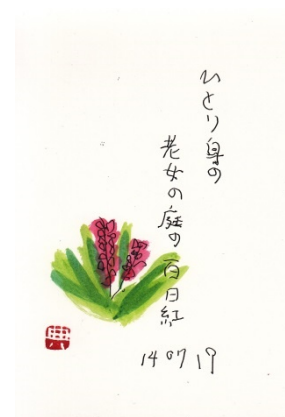 ひとり身の
老女の庭の百日紅
14 07 19